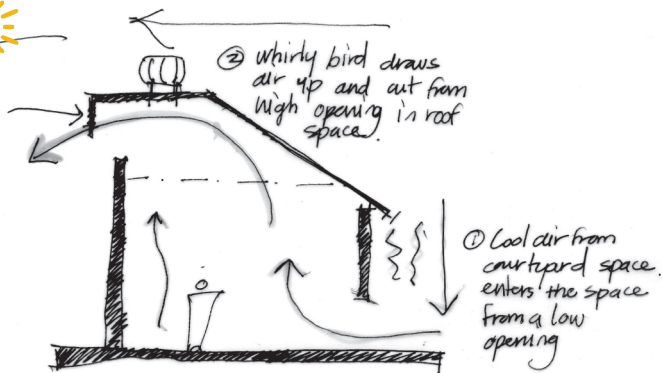 ② whirly bird draws
air up and out from
high opening in roof
space.
① Cool air from
courtyard space.
enters the space
from a low
opening